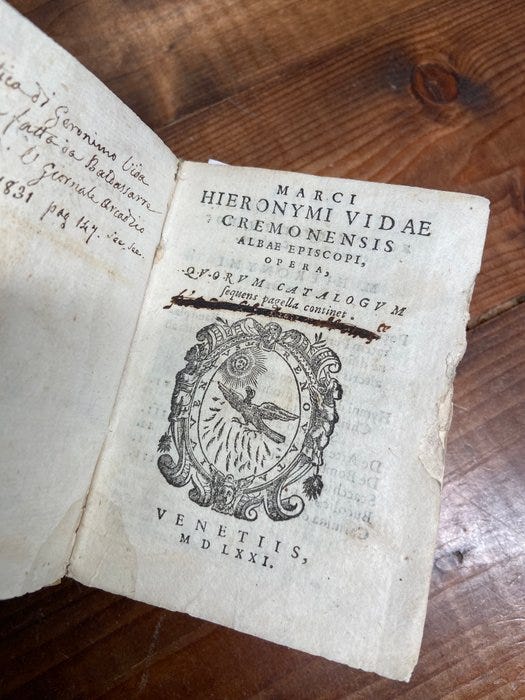 di Geronimo Vida
fatta da Baldassarre
Il Giornale arcadico
1831 pag 147.
MARCI
HIERONYMI VIDAE
CREMONENSIS
ALBAE EPISCOPI,
OPERA,
QVORVM CATALOGVM
sequens pagella continet.
RENOVATA
VENETIIS,
MDLXXI.